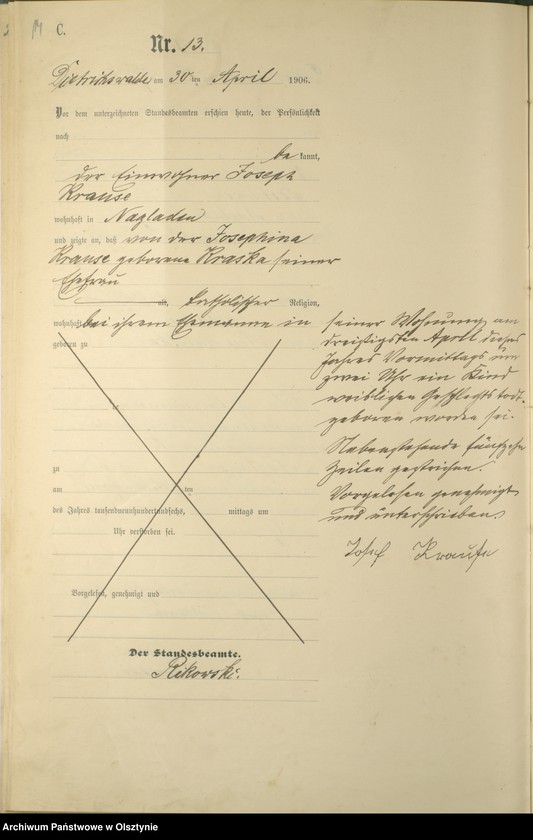 14
C.
Nr. 13.
Dietrichswalde am 30 ten April 1906.
Vor dem unterzeichneten Standesbeamten erschien heute, der Persönlichkeit
nach
be kannt,
der Einwohner Joseph
Krause
wohnhaft in Nagladen
und zeigte an, daß von der Josephina
Krause geborene Kraska seiner
Ehefrau
alt, katholischer Religion,
wohnhaft bei ihrem Ehemanne in
geboren zu
zu
am ten
des Jahres tausendneunhundertundsechs, mittags um
Uhr verstorben sei.
Vorgelesen, genehmigt und
Der Standesbeamte.
Rikowski.
seiner Wohnung am
dreißigsten April dieses
Jahres Vormittags um
zwei Uhr ein Kind
weiblichen Geschlechts todt-
geboren worden sei.
Nebenstehende fünfzehn
Zeilen gestrichen.
Vorgelesen genehmigt
und unterschrieben.
Josef Krause
Archiwum Państwowe w Olsztynie